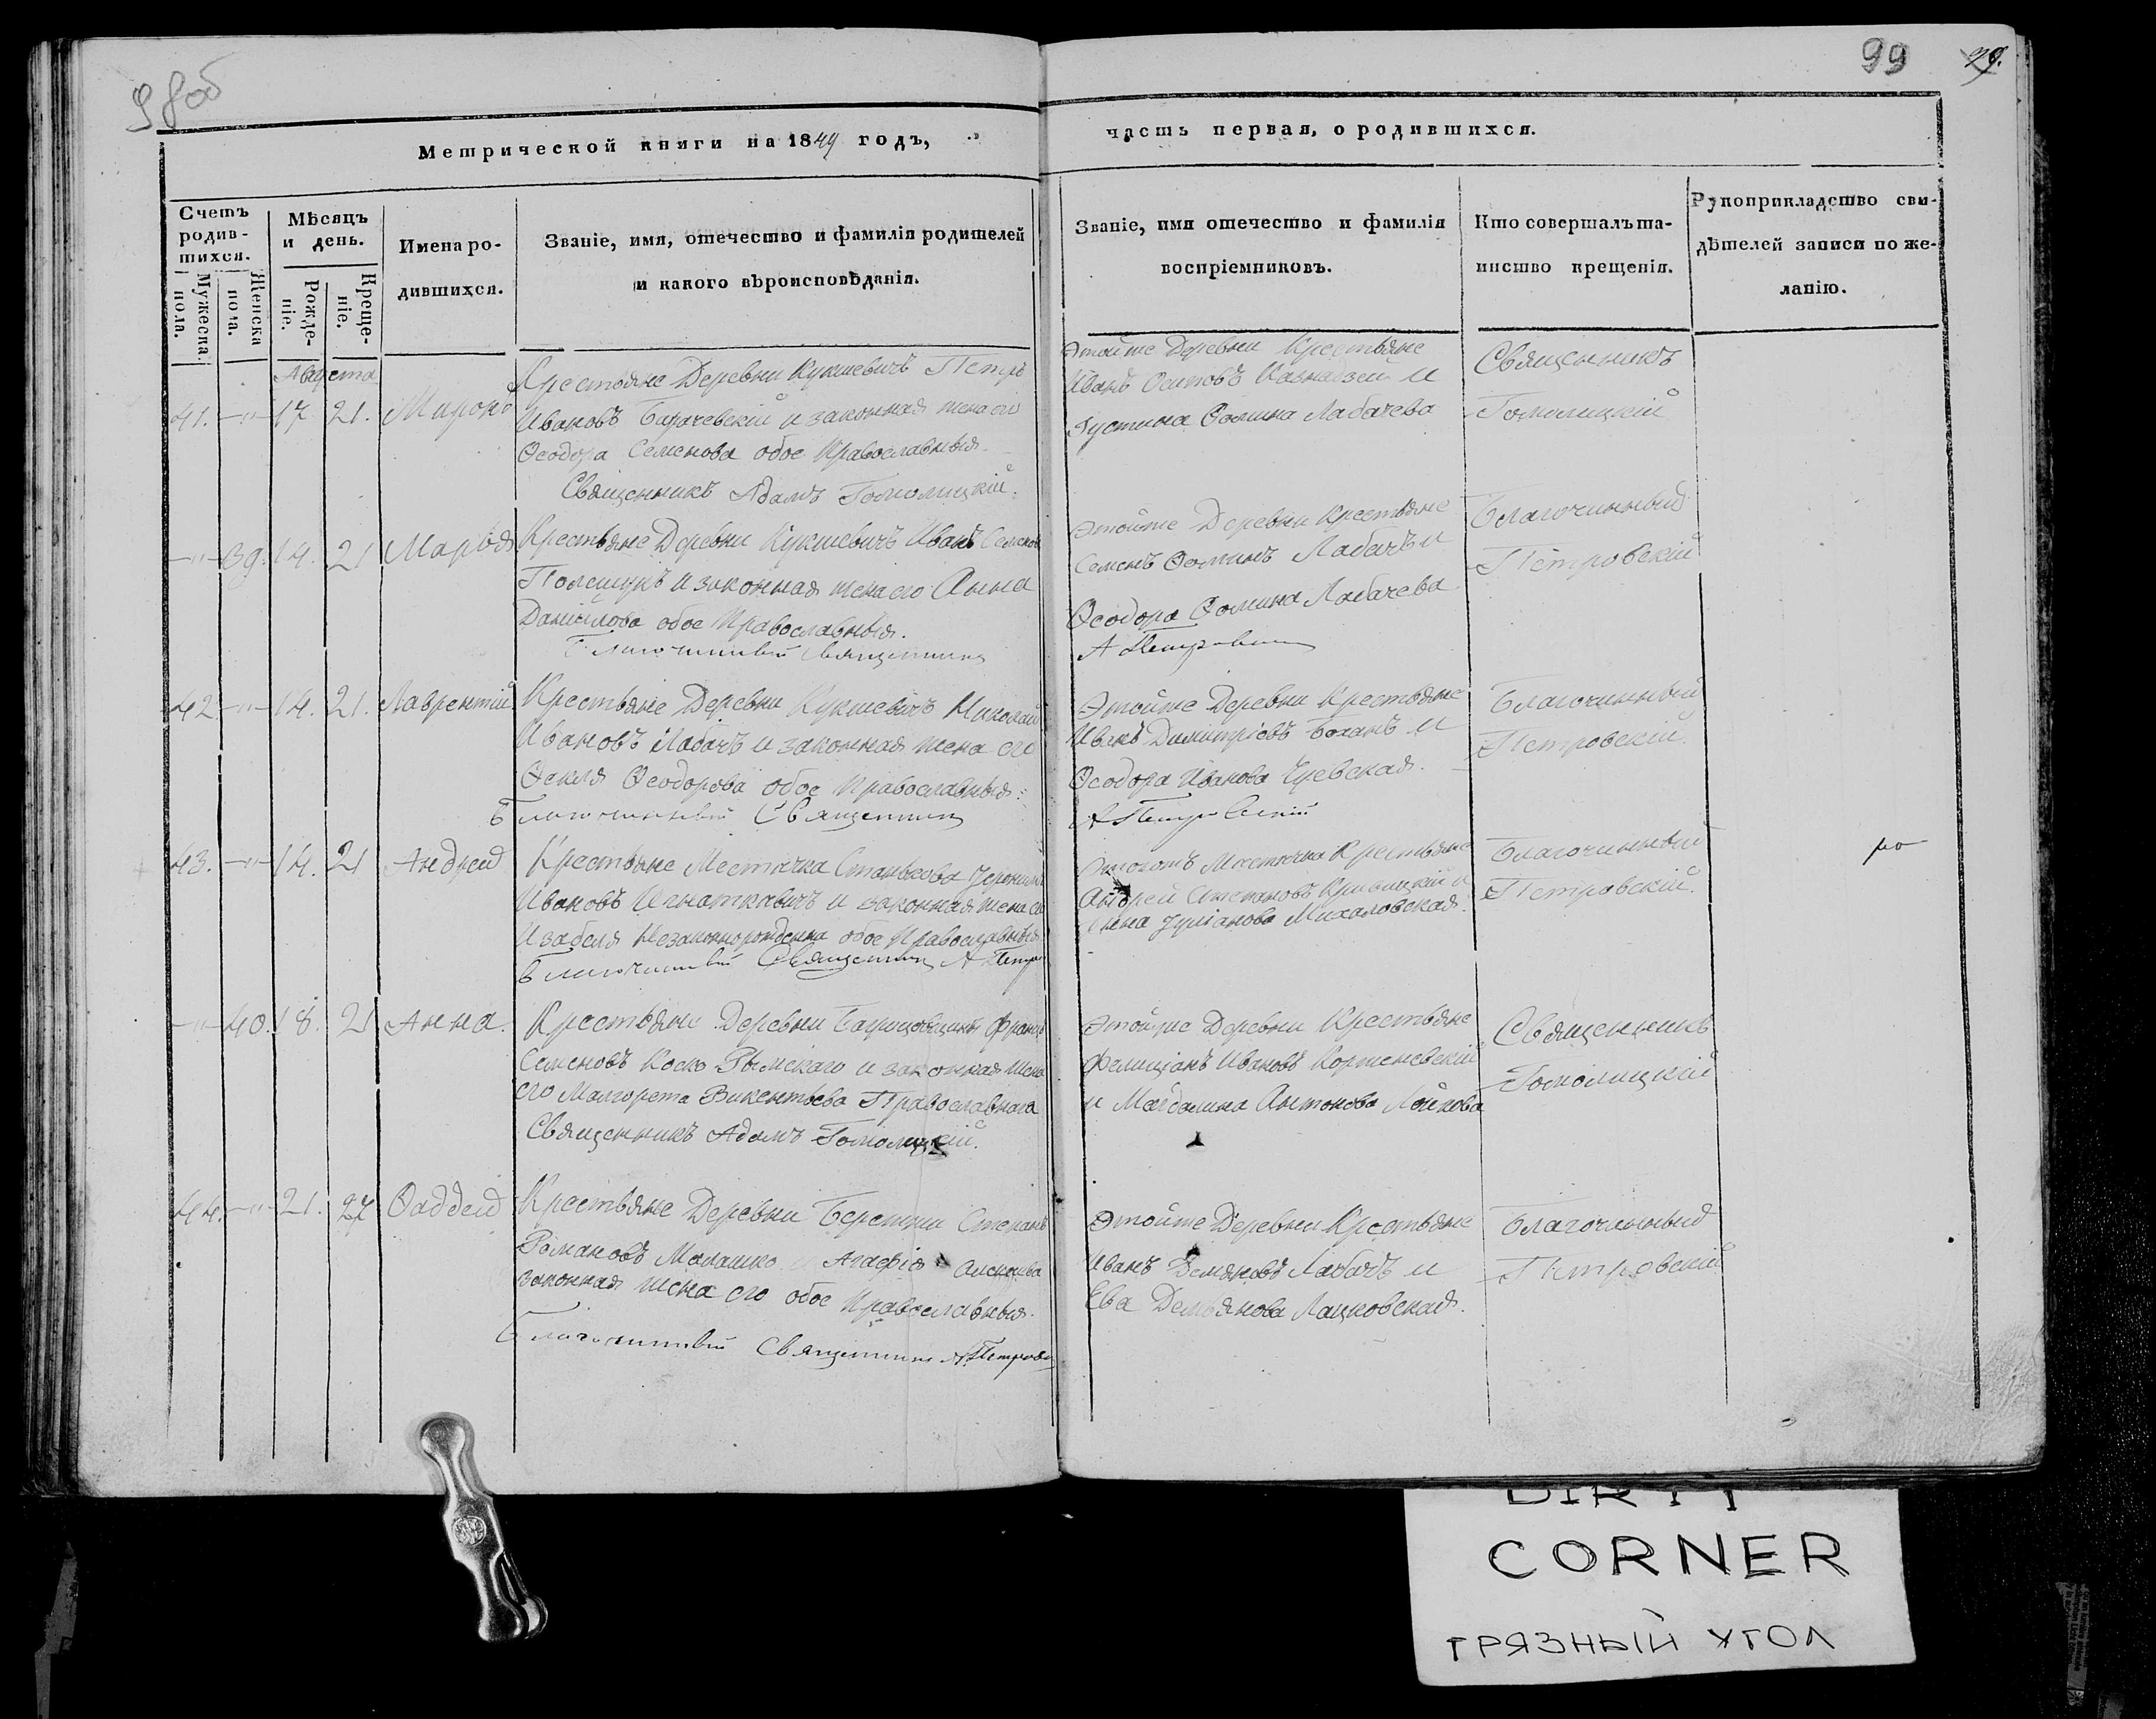 98об
99
29.
Метрической книги на 1849 годъ,
часть первая, о родившихся.
Счетъ родив-шихся.
Мужеска пола.
Женска пола.
Мѣсяцъ и день.
Рожде-ніе.
Креще-ніе.
Имена ро-дившихся.
Званіе, имя, отечество и фамилія родителей
и какого вѣроисповѣданія.
Званіе, имя отечество и фамилія
воспріемниковъ.
Кто совершалъ та-
инство крещенія.
Рукоприкладство сви-
дѣтелей записи по же-
ланію.
Августа
41. —"— 17. 21. Миронъ
Крестьяне Деревни Кукшевичъ Петръ
Ивановъ и законная жена его
Ѳеодора Семенова обое Православныя.
Священникъ Адамъ Гомолицкій.
Этойже Деревни Крестьяне
Иванъ Осиповъ и
Іустина Ѳомина Лабачева
Священникъ
Гомолицкій
—"— 39. 14. 21 Марья
Крестьяне Деревни Кукшевичъ Иванъ Семеновъ
Полещукъ и законная жена его Анна
Даніилова обое Православныя.
Благочинный Священникъ
Этойже Деревни Крестьяне
Семенъ Ѳоминъ Лабачъ и
Ѳеодора Ѳомина Лабачева
А Петровскій
Благочинный
Петровскій
42. —"— 14. 21. Лаврентій
Крестьяне Деревни Кукшевичъ Николай
Ивановъ Лабачъ и законная жена его
Ѳекля Ѳеодорова обое Православныя:
Благочинный Священникъ
Этойже Деревни Крестьяне
Иванъ Димитріевъ Боханъ и
Ѳеодора Иванова
А Петровскій
Благочинный
Петровскій
43. —"— 14. 21 Андрей
Крестьяне Местечка Станькова
Ивановъ Игнатковичъ и законная жена его
Изабеля Незаконнорожденна обое Православныя
Благочинный Священникъ А Петро
Этогожъ Местечка Крестьяне
Андрей Степановъ Кривицкій и
Іуліанова Михаловская.
Благочинный
Петровскій.
—"— 40. 18. 21 Анна.
Крестьяне Деревни Францъ
Семеновъ Коско Рымскаго и законная жена
его Малгорета Викентьева Православнаго
Священникъ Адамъ Гомолицкій.
Этойже Деревни Крестьяне
Фелиціанъ Ивановъ Корженевскій
и Магдалина Антонова
Священникъ
Гомолицкій
44. —"— 21. 27 Ѳаддей
Крестьяне Деревни Бережи Степанъ
Романовъ Малашко и Агафія
законная жена его обое Православныя.
Благочинный Священникъ А Петровскій
Этойже Деревни Крестьяне
Иванъ Лабачъ и
Ева Демьянова Лацковская.
Благочинный
Петровскій
DIRTY
CORNER
ГРЯЗНЫЙ УГОЛ